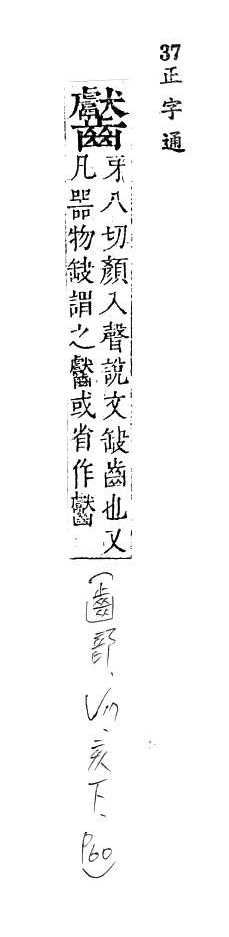 37 正字通
齾
牙八切顏入聲說文缺齒也又
凡噐物缺謂之齾或省作
(齒部, Vn, 亥下, P60)